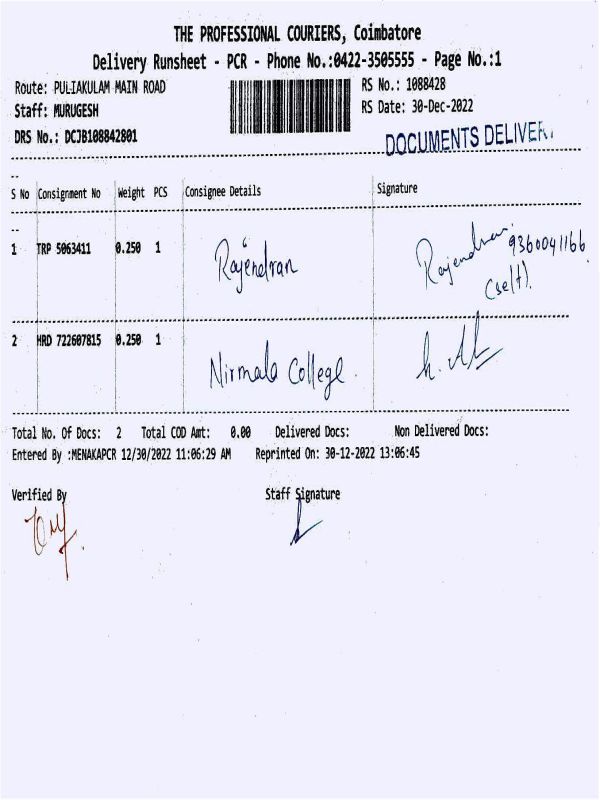 THE PROFESSIONAL COURIERS, Coimbatore
Delivery Runsheet - PCR - Phone No.:0422-3505555 - Page No.:1
Route: PULIAKULAM MAIN ROAD RS No.: 1088428
Staff: MURUGESH RS Date: 30-Dec-2022
DRS No.: DCJB108842801 DOCUMENTS DELIVER
S No Consignment No Weight PCS Consignee Details Signature
1 TRP 5063411 0.250 1 Rajendran Rajendran 9360041166
(self).
2 HRD 722607815 0.250 1 Nirmala College.
Total No. Of Docs: 2 Total COD Amt: 0.00 Delivered Docs: Non Delivered Docs:
Entered By :MENAKAPCR 12/30/2022 11:06:29 AM Reprinted On: 30-12-2022 13:06:45
Verified By Staff Signature